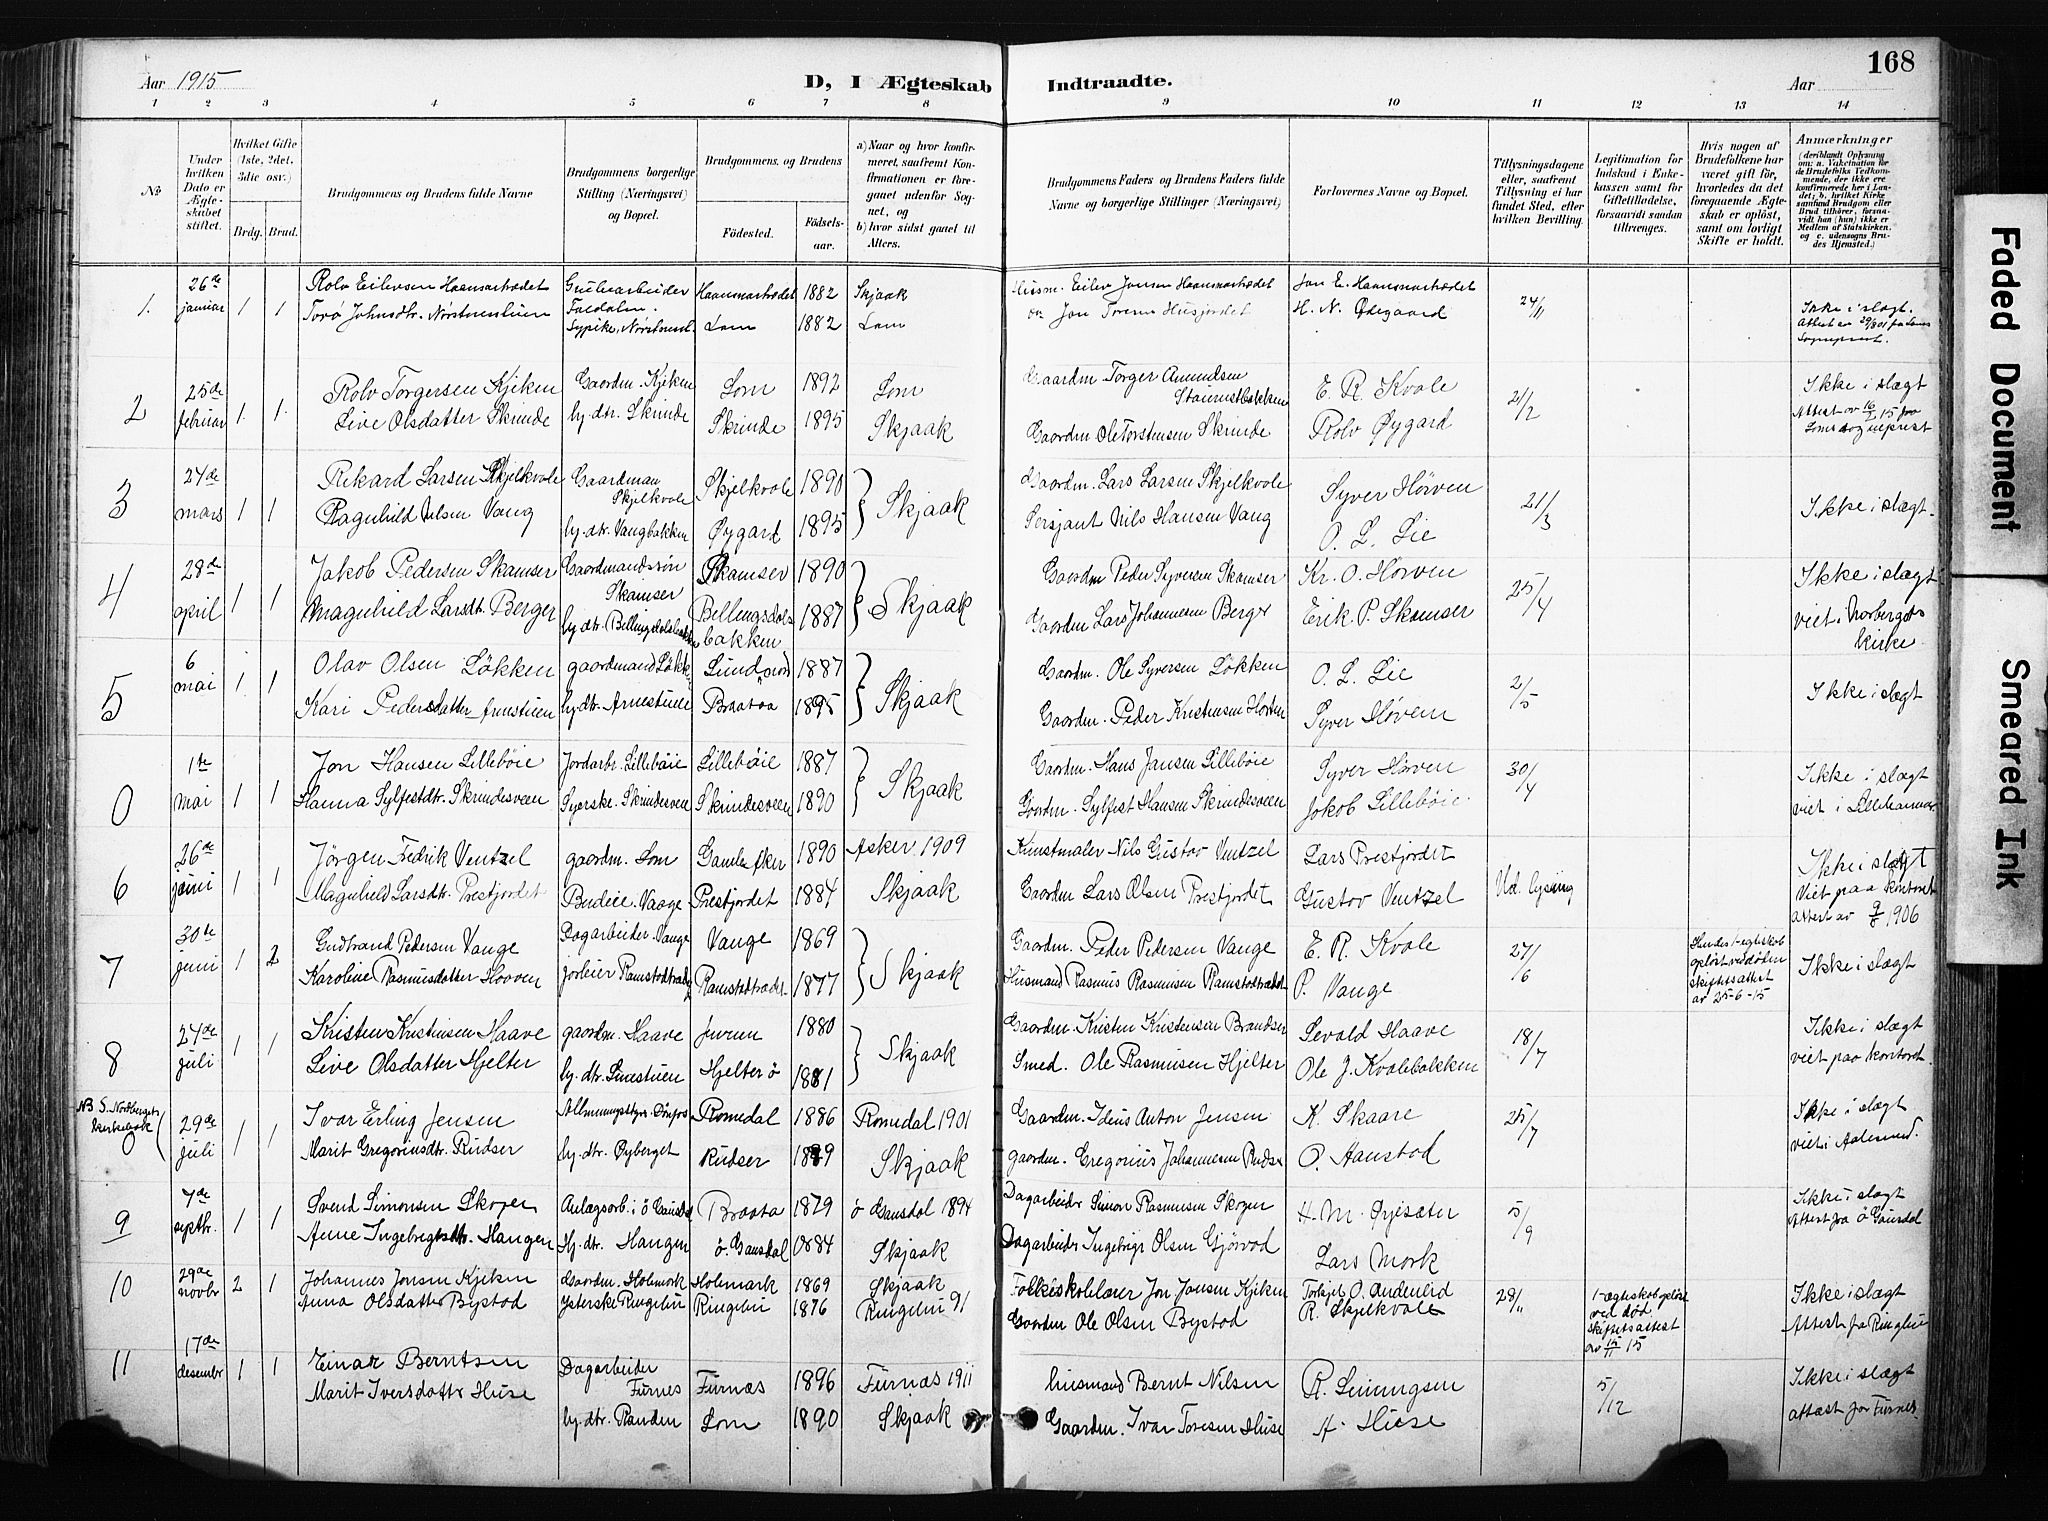 168
Aar 1915
D, I Ægteskab Indtraadte.
Aar
1 2 3 4 5 6 7 8 9 10 11 12 13 14
No
Under hvilken Dato er Ægteskabet stiftet.
Hvilket Gifte (1ste, 2det, 3die osv.)
Brdg. Brud.
Brudgommens og Brudens fulde Navne
Brudgommens borgerlige Stilling (Næringsvei) og Bopæl.
Brudgommens og Brudens
Fødested.
Fødselsaar.
a) Naar og hvor konfirmeret, saafremt Konfirmationen er foregaaet udenfor Sognet, og
b) hvor sidst gaaet til Alters.
Brudgommens Faders og Brudens Faders fulde Navne og borgerlige Stillinger (Næringsvei)
Forlovernes Navne og Bopæl.
Tillysningsdagene eller, saafremt Tillysning ei har fundet Sted, efter hvilken Bevilling.
Legitimation for Indskud i Enkekassen samt for Giftetilladelse, forsaavidt saadan tiltrænges.
Hvis nogen af Brudefolkene har været gift før, hvorledes da det foregaaende Ægteskab er opløst, samt om lovligt Skifte er holdt.
Anmærkninger
(deriblandt Oplysning om: a. Vakcination for de Brudefolks Vedkommende, der ikke ere konfirmerede her i Landet; b. hvilket Kirkesamfund Brudgom eller Brud tilhører, forsaavidt han (hun) ikke er Medlem af Statskirken, og c. udensogns Brudes Hjemsted.)
1. 26de januar 1 1 Rolv Eilevsen Haanmartrædet Grubearbeider Faldalen Haanmartrædet 1882 Skjaak Husm. Eilev Jonsen Haanmartrædet Jon E. Haanmartrædet 24/1
Torø Johnsdtr. Norstuenlien Sypike, Lom 1882 Lom Jon Toresen Husjordet H. N. Ødegaard Ikke i slægt.
2 25de februar 1 1 Rolv Torgersen Kjeken Gaardm. Kjeken Lom 1892 Lom Gaardm. Torger Amundsen Staurustbakken E. R. Kvale 21/2 Ikke i slægt
Live Olsdatter Skrinde hj. dtr. Skrinde Skrinde 1895 Skjaak Gaardm Ole Torstensen Skrinde Rolv Øygard Attest av 16/2 15 fra Loms sogneprest
3 24de mars 1 1 Rikard Larsen Skjelkvale Gaardman Skjelkvale Skjelkvale 1890 Skjaak Gaardm. Lars Larsen Skjelkvale Syver Hørven 21/3 Ikke i slægt.
Ragnhild Nilsen Vang hj. dtr. Vangbakken Øygard 1895 Sersjant Nils Hansen Vang O. L. Lie
4 28de april 1 1 Jakob Pedersen Skamser Gaardmandssøn Skamser Skamser 1890 Skjaak Gaardm Peder Syversen Skamser Kr. O. Hørven 25/4 Ikke i slægt
Magnhild Larsdtr. Berger hj. dtr. Bellingsdalsbakken Bellingsdalsbakken 1887 Gaardm Lars Johannesen Berger Erik P. Skamser viet i Norbergets kirke
5 6 mai 1 1 Olav Olsen Løkken gaardmand Løkk. 1887 Skjaak Gaardm. Ole Syversen Løkken O. L. Lie 2/5 Ikke i slægt
Kari Pedersdatter Arnestuen hj. dtr. Arnestuen Braataa 1895 Gaardm. Peder Kristensen Horten Syver Høven
0 1te mai 1 1 Jon Hansen Lillebøie Jordarb. Lillebøie Lillebøie 1887 Skjaak Gaardm. Hans Jansen Lillebøie Syver Høven 30/4 Ikke i slægt
Hanna Sylfestdtr. Skrindesveen Syerske. Skrindesveen Skrindesveen 1890 Gaardm. Sylfest Hansen Skrindesveen Jakob Lillebøie viet i Lillehammer
6 26de juni 1 1 Jørgen Fredrik Ventzel gaardm. Lom Gamle Aker 1890 Asker 1909 Kunstmaler Nils Gustav Ventzel Lars Prestjordet Ud. lysning Ikke i slægt
Magnhild Larsdtr. Prestjordet Budeie. Vaage Prestjordet 1884 Skjaak Gaardm Lars Olsen Prestjordet Gustav Ventzel Viet paa kontoret attest av 9/5 1906
7 30te juni 1 2 Gudbrand Pedersen Vange Dagarbeider. Vange Vange 1869 Skjaak Gaardm. Peder Pedersen Vange E. R. Kvale 27/6 Hendes 1 egteskab opløst ved døden skifteattest av 25-6-15 Ikke i slægt
Karoline Rasmusdatter Hoven jordeier Ramstadtrædet Ramstadtrædet 1877 Husmand Rasmus Rasmusen Ramstadtrædet P. Vange
8 24de juli 1 1 Kristen Kristensen Haave gaardm. Haave 1880 Skjaak Gaardm. Kristen Kristensen Brandser Sevald Haave 18/7 Ikke i slægt
Live Olsdatter Hjelter hj. dtr. Hjelter ø 1881 Smed. Ole Rasmusen Hjelter Ole J. Kvalebakken viet paa kontoret
NB S. Nordbergets kirkebok
0 29de juli 1 1 Ivar Erling Jensen Romedal 1886 Romedal 1901 Gaardm. Anton Jensen K. Skaare 25/7 Ikke i slægt
Marit Gregoriusdtr. Rudser hj. dtr. Øyberget Rudser 1889 Skjaak gaardm. Gregorius Johannesen Rudser O. Hanstad viet i Aalesund.
9 7de septbr. 1 1 Svend Simonsen Skogen Anlægsarb. i Ø Gausdal Braata 1879 Ø Gausdal 1894 Dagarbeider Simon Rasmusen Skogen H. M. Øyesæter 5/9 Ikke i slægt
Anne Ingebregtsdtr. Haugen Hj. dtr. Haugen Ø. Gausdal 1884 Skjaak Dagarbeider Ingebrigt Olsen Gjørvad Lars Mork Attest fra Ø Gausdal
10 29de novbr 2 1 Johannes Jonsen Kjeken Gaardm. Holemork Holemark 1869 Skjaak Folkeskolelærer Jon Jonsen Kjeken Torkjel O. Andenlid 28/11 1-ægteskab opløst ved død skifteattest av 15/11 15 Ikke i slægt
Anna Olsdatter Bystad Ringebu Ringebu 1876 Ringebu 91 Gaardm Ole Olsen Bystad R. Skjelkvale Attest fra Ringebu
11 17de desembr 1 1 Einar Berntsen Dagarbeider Furnes Furnæs 1896 Furnæs 1911 husmand Bernt Nilsen 5/12 Ikke i slægt
Marit Iversdatter Huse hj. dtr. Randen Lom 1890 Skjaak Gaardm. Ivar Toresen Huse A. Huse attest fra Furnes.
Faded Document
Smeared Ink